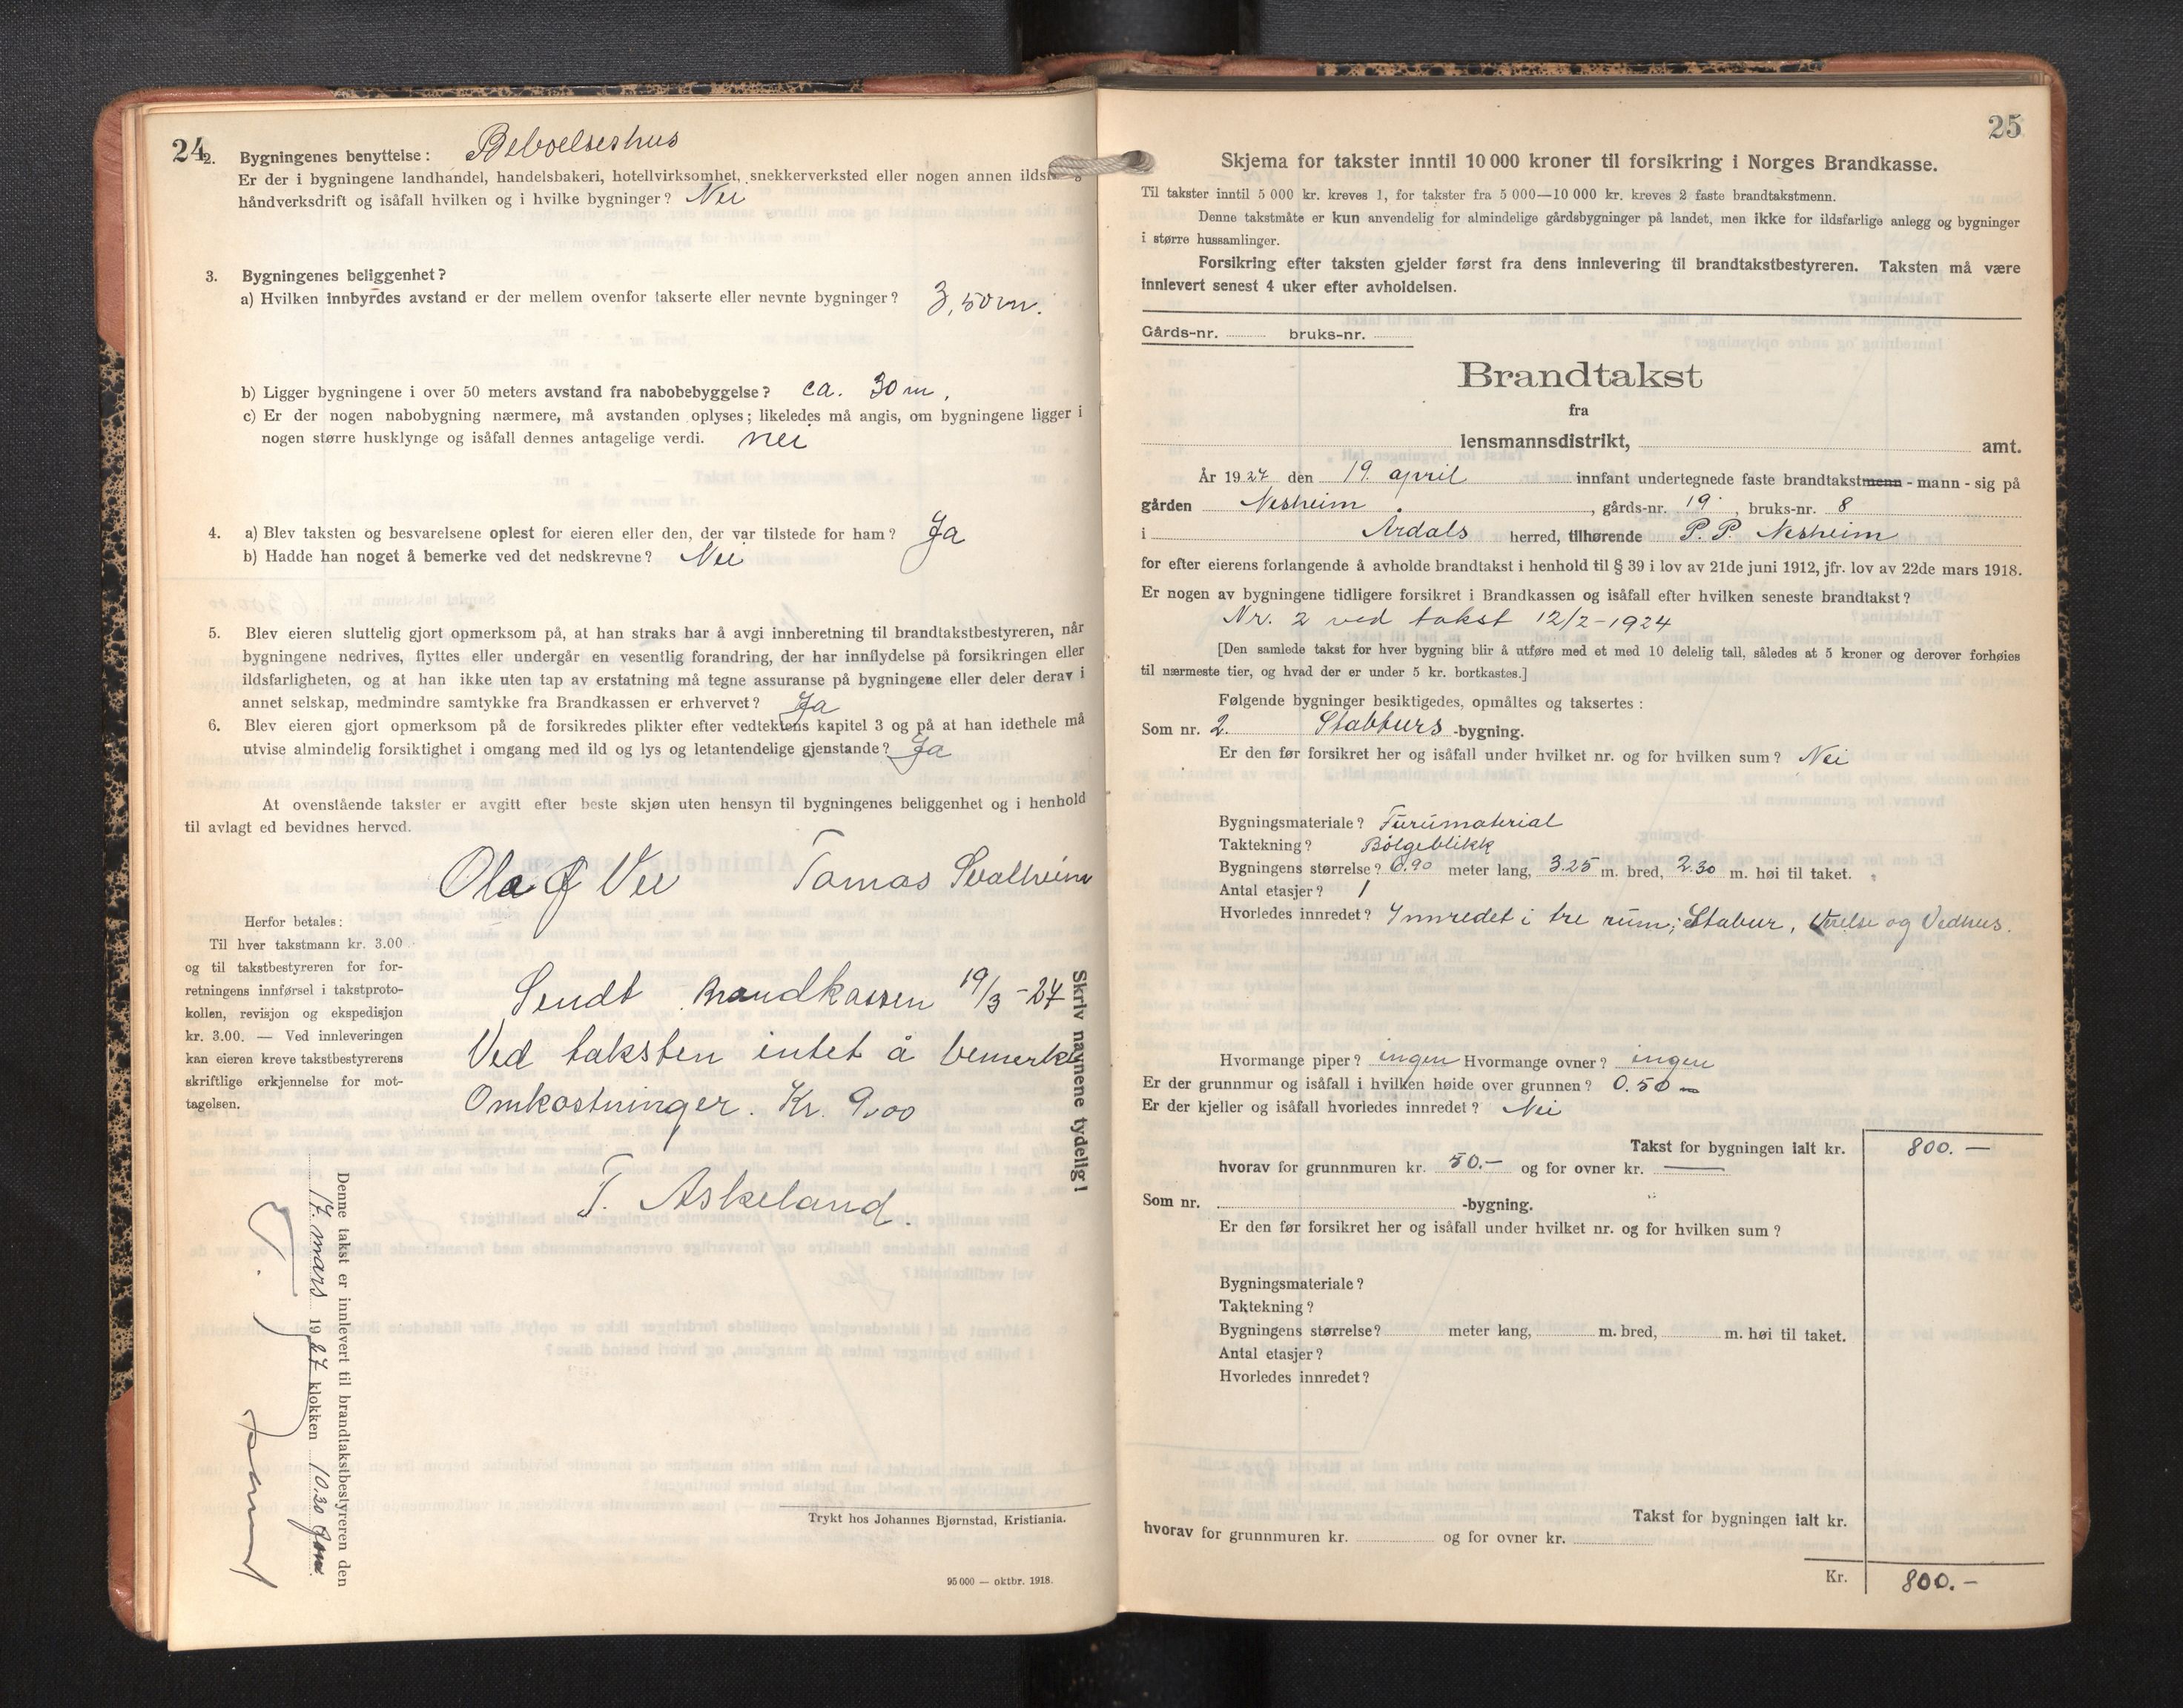 24
2. Bygningenes benyttelse: Beboelseshus
Er der i bygningene landhandel, handelsbakeri, hotellvirksomhet, snekkerverksted eller nogen annen
håndverksdrift og isåfall hvilken og i hvilke bygninger? Nei
3. Bygningenes beliggenhet?
a) Hvilken innbyrdes avstand er der mellem ovenfor takserte eller nevnte bygninger? 3,50 m.
b) Ligger bygningene i over 50 meters avstand fra nabobebyggelse? ca. 30 m,
c) Er der nogen nabobygning nærmere, må avstanden oplyses; likeledes må angis, om bygningene ligger i
nogen større husklynge og isåfall dennes antagelige verdi. nei
4. a) Blev taksten og besvarelsene oplest for eieren eller den, der var tilstede for ham? Ja
b) Hadde han noget å bemerke ved det nedskrevne? Nei
5. Blev eieren sluttelig gjort opmerksom på, at han straks har å avgi innberetning til brandtakstbestyreren, når
bygningene nedrives, flyttes eller undergår en vesentlig forandring, der har innflydelse på forsikringen eller
ildsfarligheten, og at han ikke uten tap av erstatning må tegne assuranse på bygningene eller deler derav i
annet selskap, medmindre samtykke fra Brandkassen er erhvervet? Ja
6. Blev eieren gjort opmerksom på de forsikredes plikter efter vedtektens kapitel 3 og på at han idethele må
utvise almindelig forsiktighet i omgang med ild og lys og letantendelige gjenstande? Ja
At ovenstående takster er avgitt efter beste skjøn uten hensyn til bygningenes beliggenhet og i henhold
til avlagt ed bevidnes herved.
Ola Ø Vee Tomas Svalheim
Herfor betales:
Til hver takstmann kr. 3.00
og til takstbestyreren for for-
retningens innførsel i takstproto-
kollen, revisjon og ekspedisjon
kr. 3.00. — Ved innleveringen
kan eieren kreve takstbestyrerens
skriftlige erkjennelse for mot-
tagelsen.
Sendt Brandkassen 19/3-27
Ved taksten intet å bemerke
Omkostninger. Kr. 9.00
T. Askeland.
Skriv navnene tydelig!
Denne takst er innlevert til brandtakstbestyreren den
17. mars 1927 klokken 10.30 fom.
Trykt hos Johannes Bjørnstad, Kristiania.
95 000 — oktbr. 1918.
25
Skjema for takster inntil 10 000 kroner til forsikring i Norges Brandkasse.
Til takster inntil 5 000 kr. kreves 1, for takster fra 5 000—10 000 kr. kreves 2 faste brandtakstmenn.
Denne takstmåte er kun anvendelig for almindelige gårdsbygninger på landet, men ikke for ildsfarlige anlegg og bygninger
i større hussamlinger.
Forsikring efter taksten gjelder først fra dens innlevering til brandtakstbestyreren. Taksten må være
innlevert senest 4 uker efter avholdelsen.
Gårds-nr. bruks-nr.
Brandtakst
fra
lensmannsdistrikt, amt.
År 1927 den 19. april innfant undertegnede faste brandtakstmenn - mann - sig på
gården Nesheim, gårds-nr. 19, bruks-nr. 8
i Årdals herred, tilhørende P. P. Nesheim
for efter eierens forlangende å avholde brandtakst i henhold til § 39 i lov av 21de juni 1912, jfr. lov av 22de mars 1918.
Er nogen av bygningene tidligere forsikret i Brandkassen og isåfall efter hvilken seneste brandtakst?
Nr. 2 ved takst 12/2-1924
[Den samlede takst for hver bygning blir å utføre med et med 10 delelig tall, således at 5 kroner og derover forhøies
til nærmeste tier, og hvad der er under 5 kr. bortkastes.]
Følgende bygninger besiktigedes, opmåltes og taksertes:
Som nr. 2. Stabburs -bygning.
Er den før forsikret her og isåfall under hvilket nr. og for hvilken sum? Nei
Bygningsmateriale? Furumaterial
Taktekning? Bölgeblikk
Bygningens størrelse? 6.90 meter lang, 3.25 m. bred, 2.30 m. høi til taket.
Antal etasjer? 1
Hvorledes innredet? Innredet i tre rum; Stabur, og Vedhus.
Hvormange piper? ingen Hvormange ovner? ingen
Er der grunnmur og isåfall i hvilken høide over grunnen? 0.50 m
Er der kjeller og isåfall hvorledes innredet? Nei
Takst for bygningen ialt kr. 800.—
hvorav for grunnmuren kr. 50.— og for ovner kr. —
Som nr. -bygning.
Er den før forsikret her og isåfall under hvilket nr. og for hvilken sum?
Bygningsmateriale?
Taktekning?
Bygningens størrelse? meter lang, m. bred, m. høi til taket.
Antal etasjer?
Hvorledes innredet?
Takst for bygningen ialt kr.
hvorav for grunnmuren kr. og for ovner kr.
Kr. 800.—